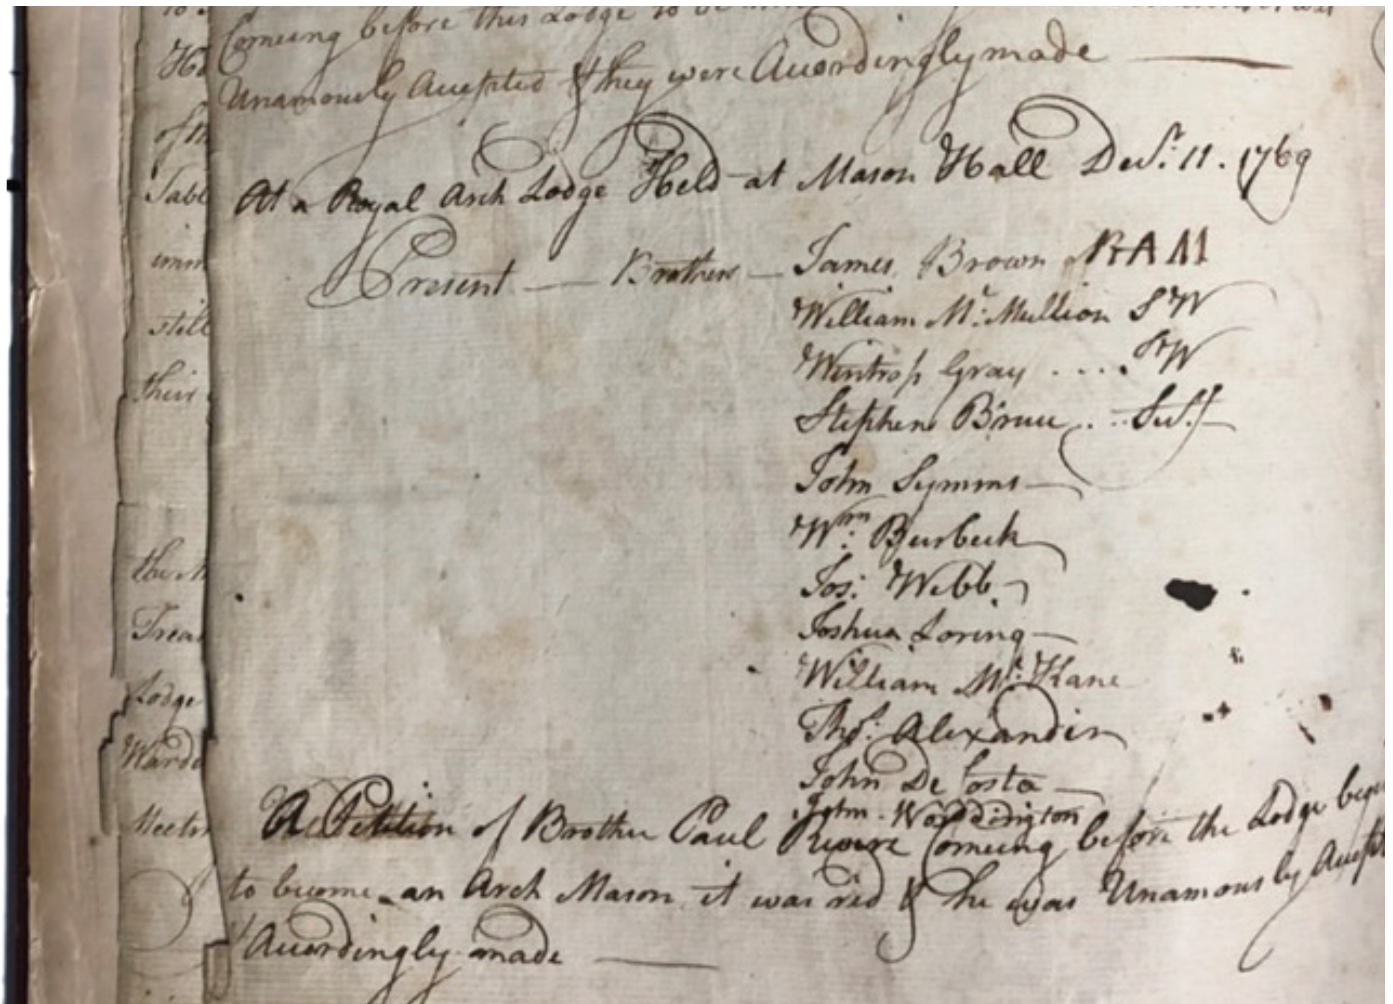 Comeing before this Lodge to be
Unamously Accepted & they were Accordingly made
At a Royal Arch Lodge Held at Mason Hall Decr. 11. 1769
Present — Brothers — James Brown RAM
William Mc: Mullion SW
Wintrop Gray .... JrW
Stephen Bruce .. Secy
John Symms
Wm: Burbeck
Jos: Webb
Joshua Loring
William Mc: Kane
Thos: Alexander
John De Costa
John Woddington
A Petition of Brother Paul Revere Comeing before the Lodge
to become an Arch Mason it was red & he was Unamously
& Accordingly made
still
their
Lodge